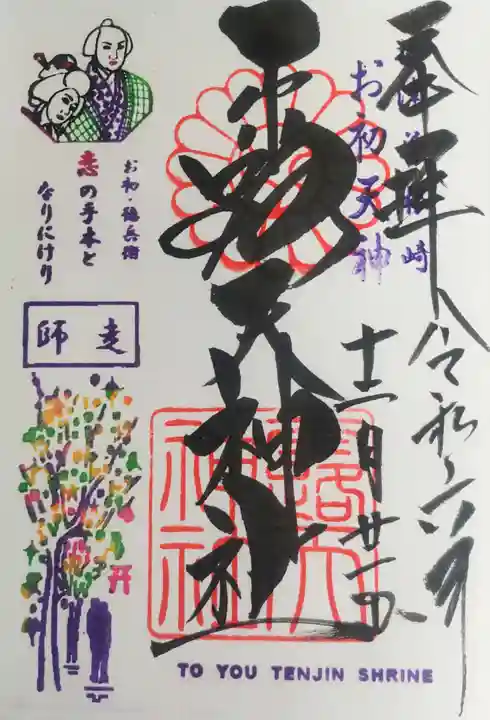 奉拝
令和六年
十二月廿一日
崎
お初天神
露天神社
露天神社
お初・徳兵衛
恋の手本と
なりにけり
師走
TO YOU TENJIN SHRINE